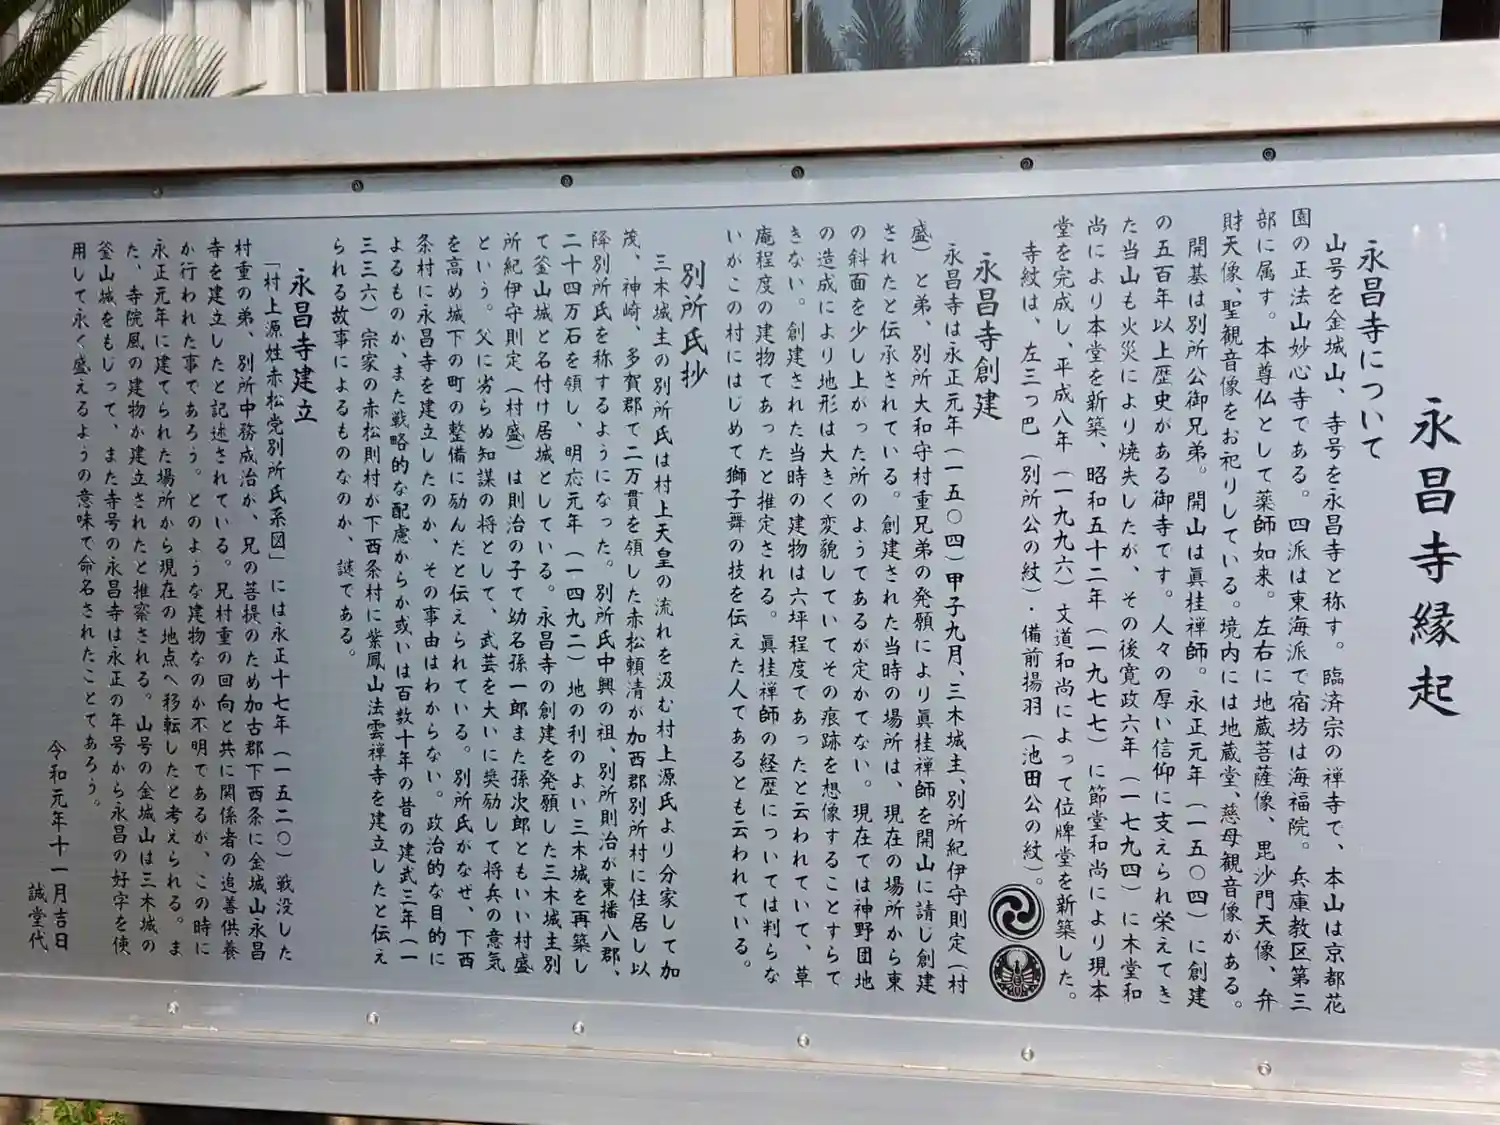 永昌寺縁起
永昌寺について
山号を金城山、寺号を永昌寺と称す。臨済宗の禅寺で、本山は京都花
園の正法山妙心寺である。四派は東海派で宿坊は海福院。兵庫教区第三
部に属す。本尊仏として薬師如来。左右に地蔵菩薩像、毘沙門天像、弁
財天像、聖観音像をお祀りしている。境内には地蔵堂、慈母観音像がある。
開基は別所公御兄弟。開山は眞桂禅師。永正元年（一五〇四）に創建
の五百年以上歴史がある御寺です。人々の厚い信仰に支えられ栄えてき
た当山も火災により焼失したが、その後寛政六年（一七九四）に木堂和
尚により本堂を新築、昭和五十二年（一九七七）に節堂和尚により現本
堂を完成し、平成八年（一九九六）文道和尚によって位牌堂を新築した。
寺紋は、左三つ巴（別所公の紋）・備前揚羽（池田公の紋）。
永昌寺創建
永昌寺は永正元年（一五〇四）甲子九月、三木城主、別所紀伊守則定（村
盛）と弟、別所大和守村重兄弟の発願により眞桂禅師を開山に請じ創建
されたと伝承されている。創建された当時の場所は、現在の場所から東
の斜面を少し上がった所のようであるが定かでない。現在では神野団地
の造成により地形は大きく変貌していてその痕跡を想像することすらで
きない。創建された当時の建物は六坪程度であったと云われていて、草
庵程度の建物であったと推定される。眞桂禅師の経歴については判らな
いがこの村にはじめて獅子舞の技を伝えた人であるとも云われている。
別所氏抄
三木城主の別所氏は村上天皇の流れを汲む村上源氏より分家して加
茂、神崎、多賀郡で二万貫を領した赤松頼清が加西郡別所村に住居し以
降別所氏を称するようになった。別所氏中興の祖、別所則治が東播八郡、
二十四万石を領し、明応元年（一四九二）地の利のよい三木城を再築し
て釜山城と名付け居城としている。永昌寺の創建を発願した三木城主別
所紀伊守則定（村盛）は則治の子で幼名孫一郎また孫次郎ともいい村盛
という。父に劣らぬ知謀の将として、武芸を大いに奨励して将兵の意気
を高め城下の町の整備に励んだと伝えられている。別所氏がなぜ、下西
条村に永昌寺を建立したのか、その事由はわからない。政治的な目的に
よるものか、また戦略的な配慮からか或いは百数十年の昔の建武三年（一
三三六）宗家の赤松則村が下西条村に紫鳳山法雲禅寺を建立したと伝え
られる故事によるものなのか、謎である。
永昌寺建立
「村上源姓赤松党別所氏系図」には永正十七年（一五二〇）戦没した
村重の弟、別所中務成治が、兄の菩提のため加古郡下西条に金城山永昌
寺を建立したと記述されている。兄村重の回向と共に関係者の追善供養
が行われた事であろう。どのような建物なのか不明であるが、この時に
永正元年に建てられた場所から現在の地点へ移転したと考えられる。ま
た、寺院風の建物が建立されたと推察される。山号の金城山は三木城の
釜山城をもじって、また寺号の永昌寺は永正の年号から永昌の好字を使
用して永く盛えるようの意味で命名されたことであろう。
令和元年十一月吉日
誠堂代